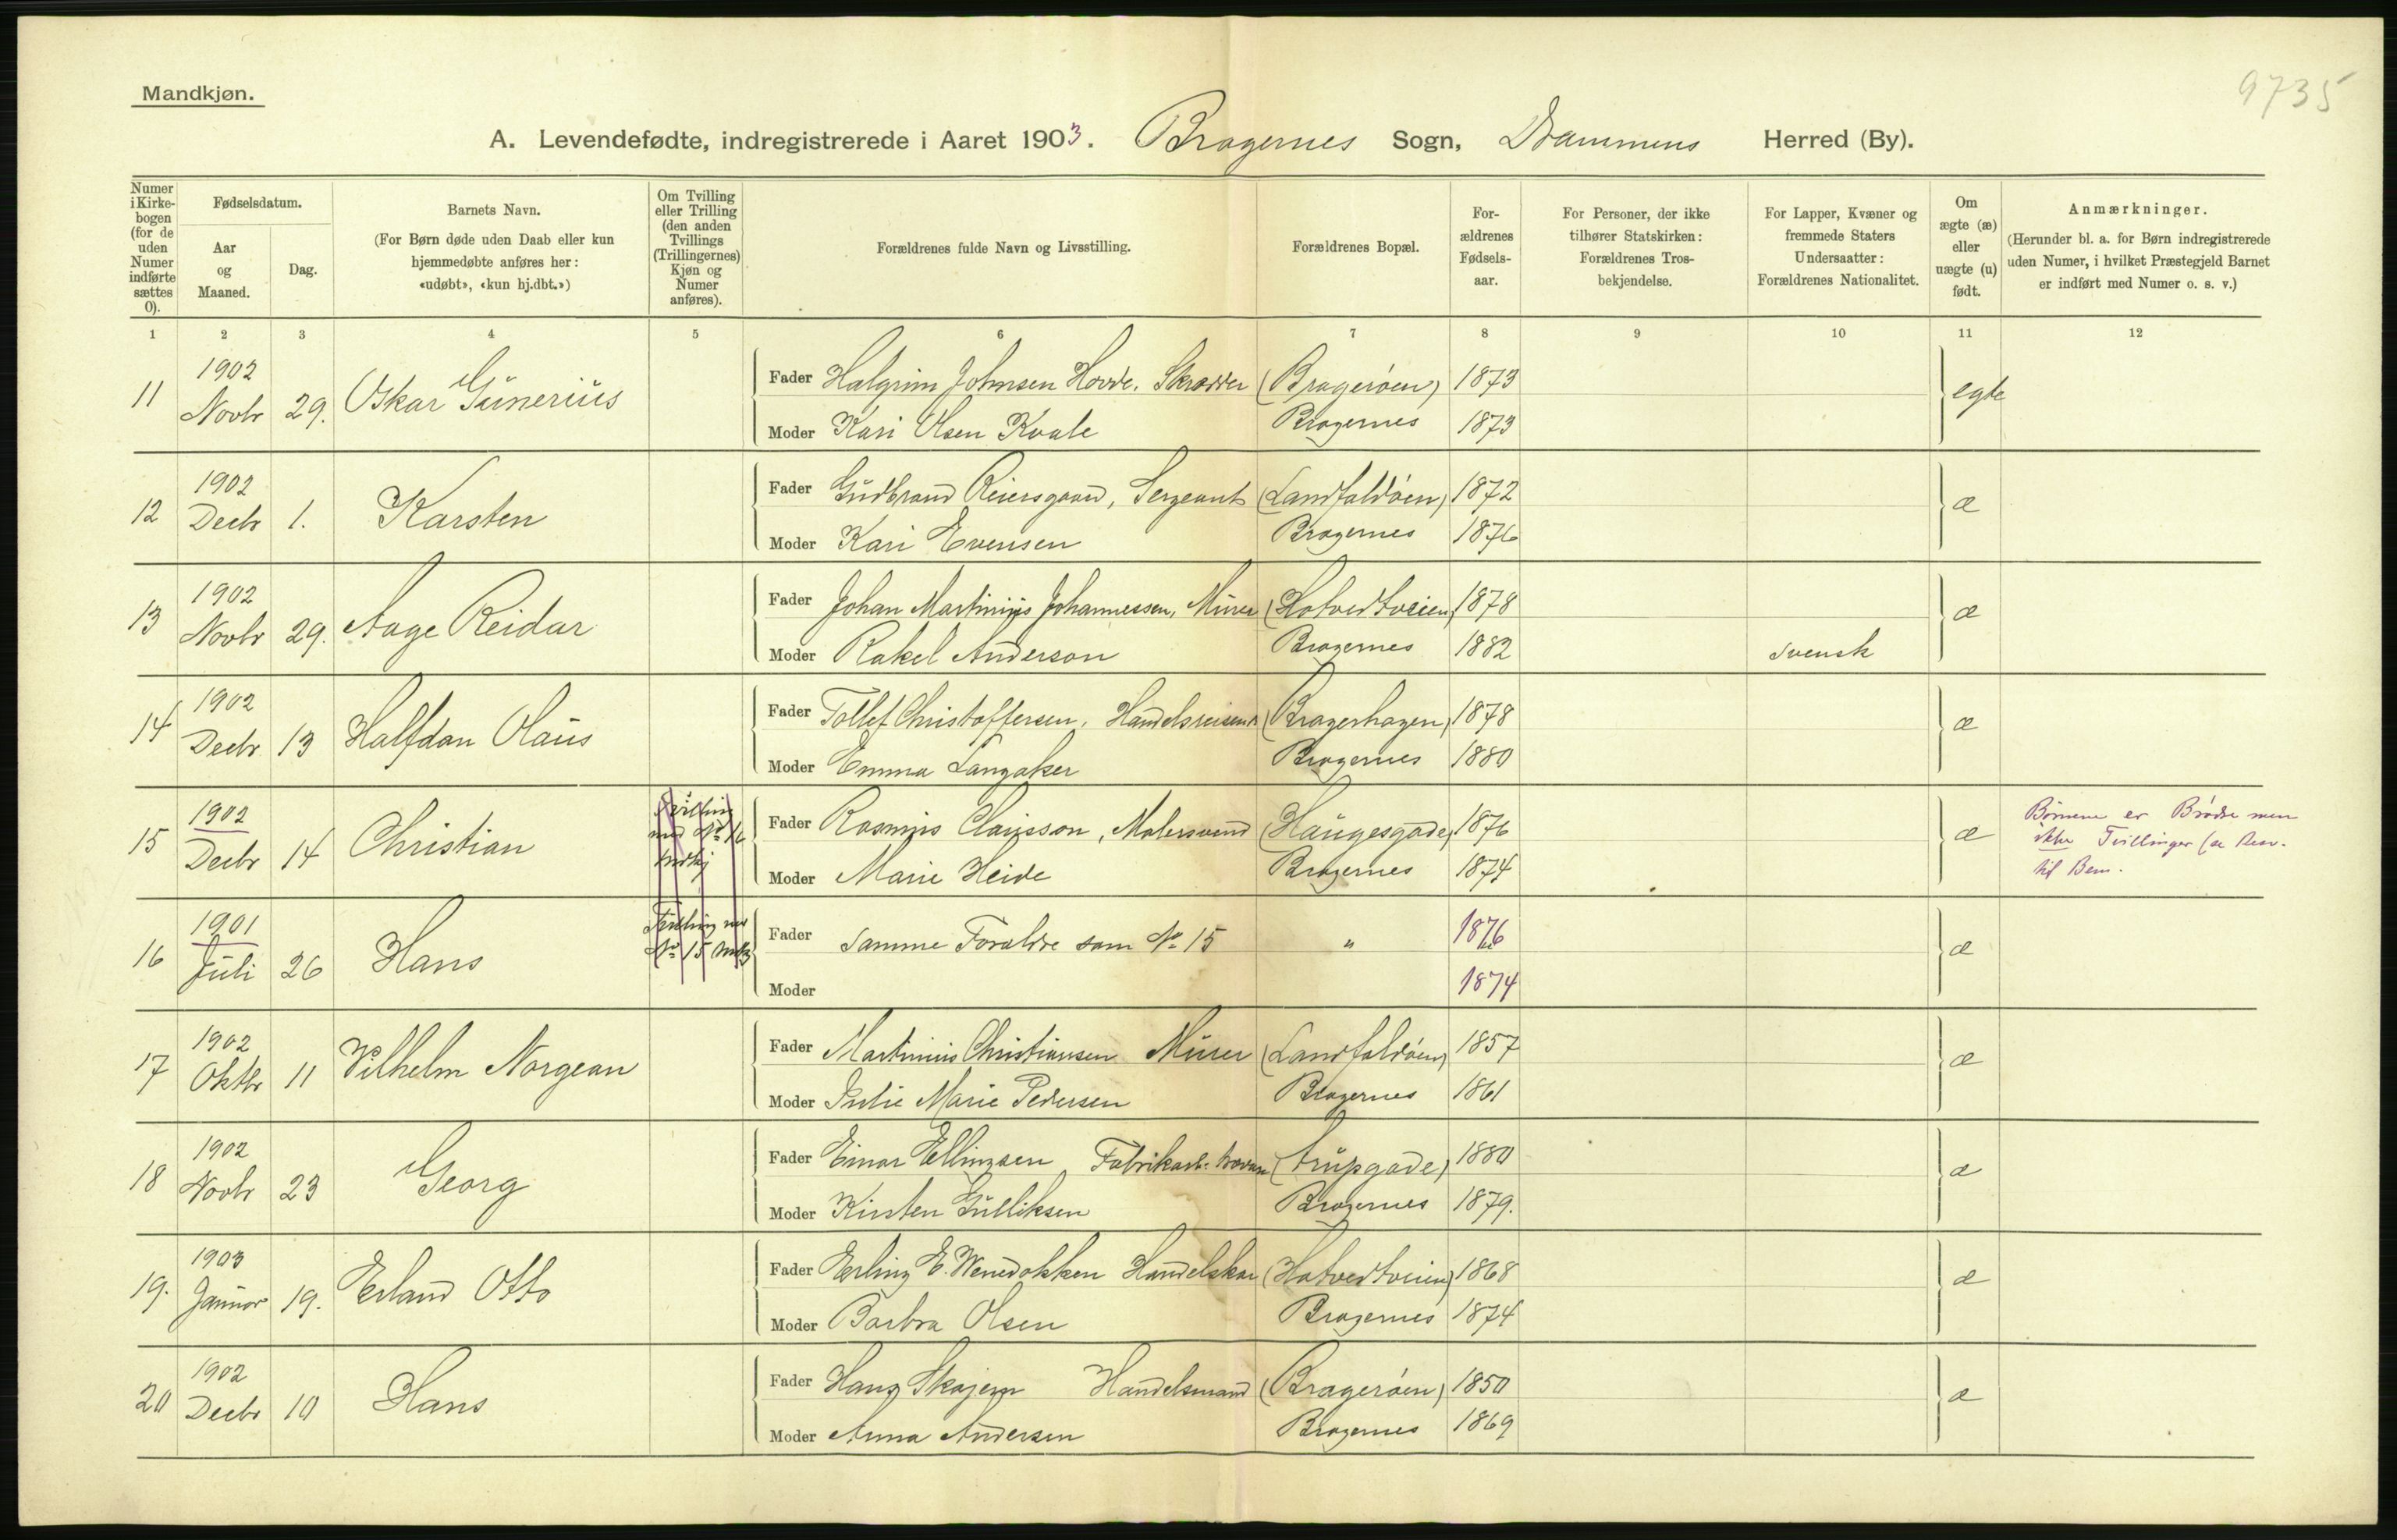 9735
Mandkjøn.
A. Levendefødte, indregistrerede i Aaret 1903. Bragernes Sogn, Drammens Herred (By).
Numer i Kirkebogen (for de uden Numer indførte sættes 0).
Fødselsdatum.
Aar og Maaned.
Dag.
Barnets Navn.
(For Børn døde uden Daab eller kun hjemmedøbte anføres her: «udøbt», «kun hj.dbt.»)
Om Tvilling eller Trilling (den anden Tvillings (Trillingernes) Kjøn og Numer anføres).
Forældrenes fulde Navn og Livsstilling.
Forældrenes Bopæl.
Forældrenes Fødselsaar.
For Personer, der ikke tilhører Statskirken: Forældrenes Trosbekjendelse.
For Lapper, Kvæner og fremmede Staters Undersaatter: Forældrenes Nationalitet.
Om ægte (æ) eller uægte (u) født.
Anmærkninger.
(Herunder bl. a. for Børn indregistrerede uden Numer, i hvilket Præstegjeld Barnet er indført med Numer o. s. v.)
1 2 3 4 5 6 7 8 9 10 11 12
11 1902 Novbr 29. Oskar Gunerius
Fader Halgrim Johnsen Hovde, Skrædder (Bragerøen) 1873 egte
Moder Kari Olsen Kvale Bragernes 1873
12 1902 Decbr 1. Karsten
Fader Gudbrand Reiersgaard, Sergeant (Landfaldøen) 1872 æ
Moder Kari Evensen Bragernes 1876
13 1902 Novbr 29. Aage Reidar
Fader Johan Martinius Johannessen, Murer (Hotvedtveien) 1878 æ
Moder Rakel Anderson Bragernes 1882 svensk
14 1902 Decbr 13 Halfdan Olaus
Fader Tollef Christoffersen, Handelsreisend (Bragerhagen) 1878 æ
Moder Emma Langaker Bragernes 1880
15 1902 Decbr 14 Christian Tvilling med No 16
Fader Rasmus Clausson, Malersvend (Haugesgade) 1876 æ
Moder Marie Heide Bragernes 1874
Børnene er Brødre men
ikke Tvillinger (se
til Bem.
16 1901 Juli 26 Hans Tvilling med No 15
Fader samme Forældre som No 15 " 1876 æ
Moder 1874
17 1902 Oktbr 11 Vilhelm Norgean
Fader Martinius Christiansen Murer (Landfaldøen) 1857 æ
Moder Julie Marie Pedersen Bragernes 1861
18 1902 Novbr 23 Georg
Fader Einar Ellingsen Fabrikarb. (Arupgade) 1880 æ
Moder Kirsten Gulliksen Bragernes 1879.
19. 1903 Januar 19. Erland Otto
Fader Erling E. Handelskar (Hotvedtveien) 1868 æ
Moder Barbra Olsen Bragernes 1874
20 1902 Decbr 10 Hans
Fader Hans Skajem Handelsmand (Bragerøen) 1850 æ
Moder Anna Andersen Bragernes 1869